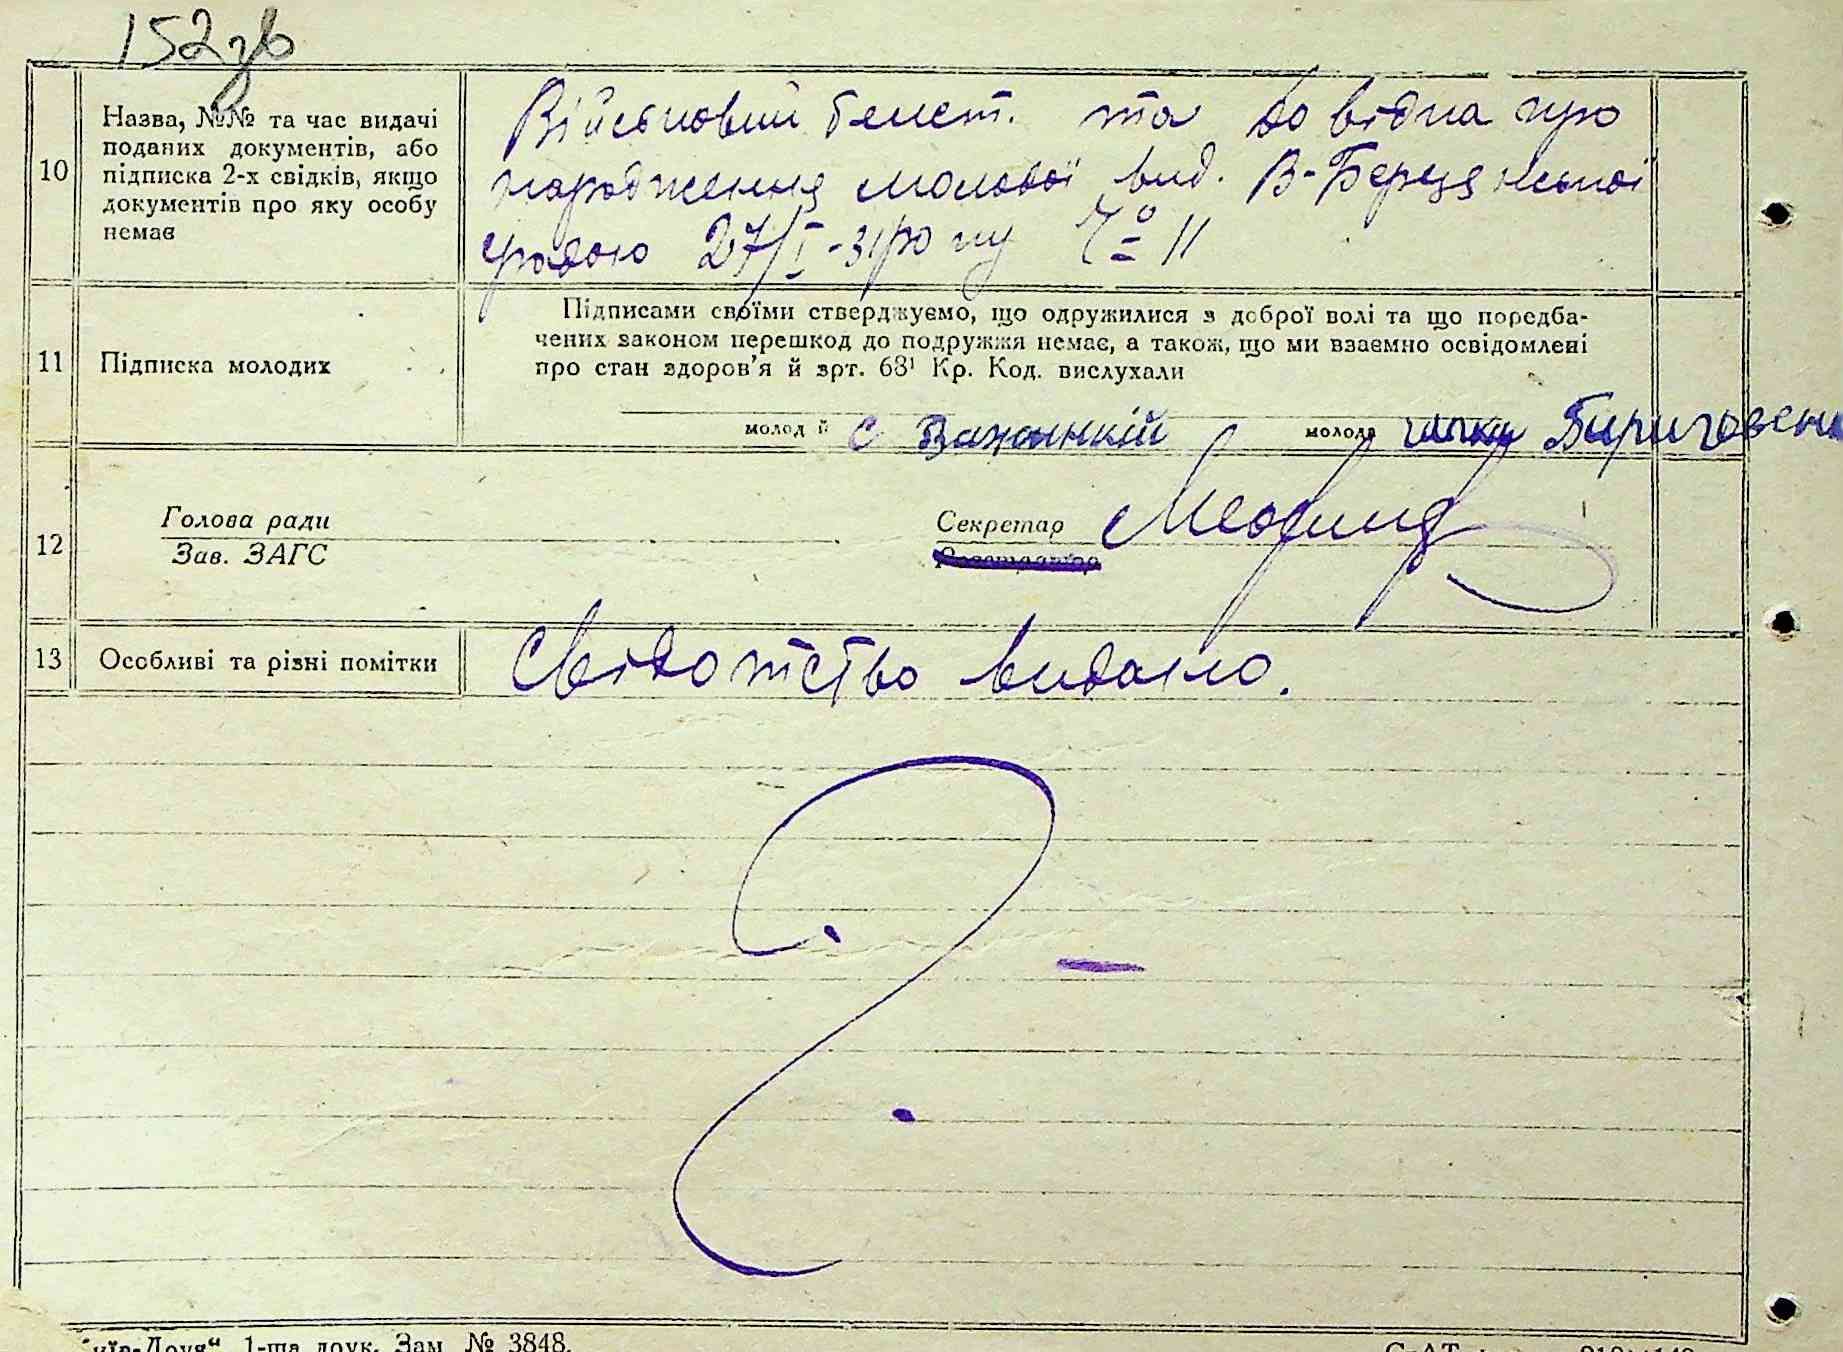 152зв
10
Назва, №№ та час видачі
поданих документів, або
підписка 2-х свідків, якщо
документів про яку особу
немає
Військовий білет. та довідка про
народження молодої вид. В-Березянської
радою 27/I-31 року № 11
11
Підписка молодих
Підписами своїми стверджуємо, що одружилися з доброї волі та що передба-
чених законом перешкод до подружжя немає, а також, що ми взаємно освідомлені
про стан здоров'я й арт. 68¹ Кр. Код. вислухали
молод й С Важинкій молода
12
Голова ради
Зав. ЗАГС
Секретар
13
Особливі та різні помітки
Свідотство видано.
1-ша друк. Зам. № 3848.